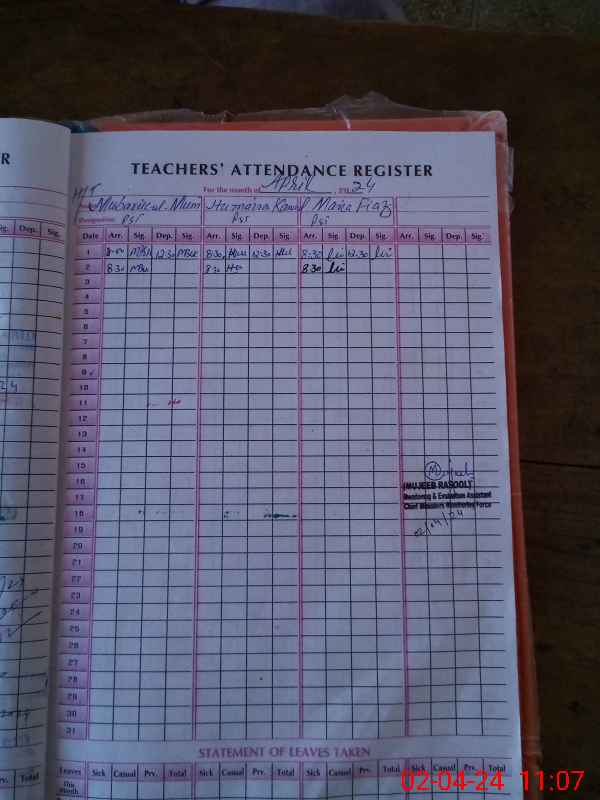 R
TEACHERS' ATTENDANCE REGISTER
For the month of April 24
H/T Humaira Kanwal Maria Fiaz
Designation PST PST PST
Sig. Dep. Sig.
Date Arr. Sig. Dep. Sig. Arr. Sig. Dep. Sig. Arr. Sig. Dep. Sig. Arr. Sig. Dep. Sig.
1 8:00 12:30 8:30 12:30 8:30 12:30
2 8:30 8:30 8:30
3
4
5
6
7
8
9
10
11
12
13
14
15
16
(MUJEEB RASOOL)
17 Monitoring & Evaluation Assistant
Chief Minister's Monitoring Force
18
02/04/24
19
20
21
22
23
24
25
26
27
28
29
30
31
STATEMENT OF LEAVES TAKEN
Prv. Total
Leaves Sick Casual Prv. Total Sick Casual Prv. Total Sick Casual Prv. Total Sick Casual Prv. Total
This Month
02-04-24 11:07